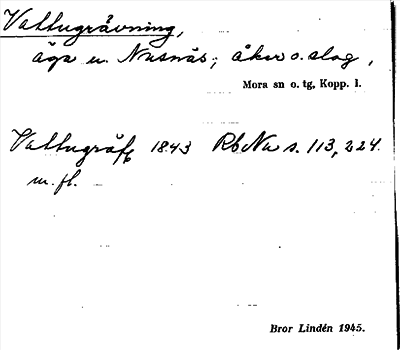 Vattugrävning,
äga u. Nusnäs; åker o. slog,
Mora sn o. tg, Kopp. l.
Vattugräf 1843 Rb Nu s. 113, 224.
m. fl.
Bror Lindén 1945.